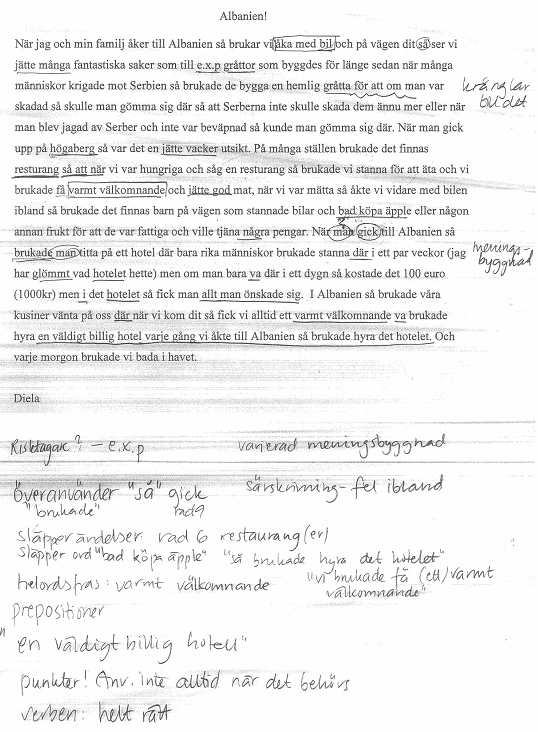 Albanien!
När jag och min familj åker till Albanien så brukar vi åka med bil och på vägen dit så ser vi
jätte många fantastiska saker som till e.x.p gråttor som byggdes för länge sedan när många
människor krigade mot Serbien så brukade de bygga en hemlig gråtta för att om man var
skadad så skulle man gömma sig där så att Serberna inte skulle skada dem ännu mer eller när
man blev jagad av Serber och inte var beväpnad så kunde man gömma sig där. När man gick
upp på högaberg så var det en jätte vacker utsikt. På många ställen brukade det finnas
resturang så att när vi var hungriga och såg en resturang så brukade vi stanna för att äta och vi
brukade få varmt välkomnande och jätte god mat, när vi var mätta så åkte vi vidare med bilen
ibland så brukade det finnas barn på vägen som stannade bilar och bad köpa äpple eller någon
annan frukt för att de var fattiga och ville tjäna några pengar. När man gick till Albanien så
brukade man titta på ett hotel där bara rika människor brukade stanna där i ett par veckor (jag
har glömmt vad hotelet hette) men om man bara va där i ett dygn så kostade det 100 euro
(1000kr) men i det hotelet så fick man allt man önskade sig. I Albanien så brukade våra
kusiner vänta på oss där när vi kom dit så fick vi alltid ett varmt välkomnande va brukade
hyra en väldigt billig hotel varje gång vi åkte till Albanien så brukade hyra det hotelet. Och
varje morgon brukade vi bada i havet.
krånglar
bildet
menings-
byggnad
Diela
Risktagare? - e.x.p
varierad meningsbyggnad
överanvänder "så" gick
"brukade" rad9
särskrivning - fel ibland
släpper ändelser rad 6 restaurang(er)
släpper ord "bad köpa äpple" "så brukade hyra det hotelet"
helordsfras: varmt välkomnande "vi brukade få (ett) varmt
välkomnande"
prepositioner
"en väldigt billig hotell"
punkter! Anv. inte alltid när det behövs
verben: helt rätt